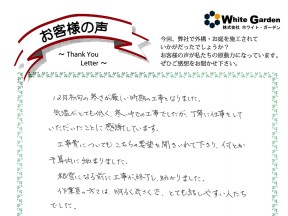 お客様の声
～ Thank You Letter ～
White Garden
株式会社 ホワイト・ガーデン
今回、弊社で外構・お庭を施工されて
いかがだったでしょうか？
お客様の声が私たちの原動力になっています。
ぜひご感想をお聞かせ下さい。
12月初旬の寒さが厳しい時期の工事となりました。
気温がとても低く、寒い中での工事でしたが、丁寧に仕事をして
いただいたことに感謝しています。
工事費についてもこちらの要望を聞き入れて下さり、何とか
予算内に納まりました。
根雪になる前に工事が終了し、助かりました。
作業員の方々は、明るく気さくで、とても話しやすい人たち
でした。